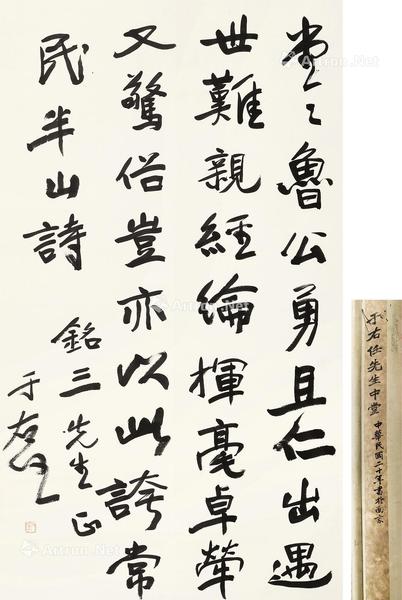 堂〻魯公勇且仁出遇
世難親經綸揮毫卓犖
又驚俗豈亦以此誇常
民半山詩
銘三先生正
于右任
于右任先生中堂 中華民國二十年書於南京
Artron.Net